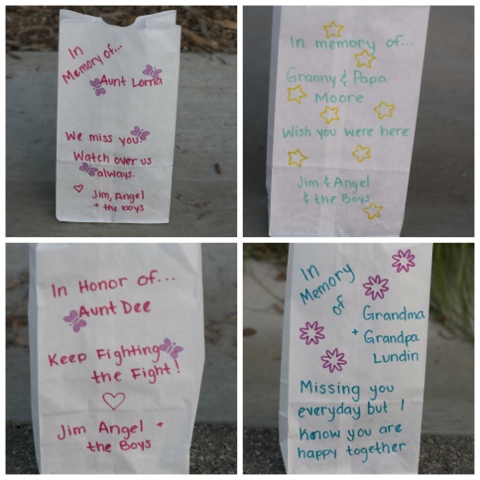 In
Memory of...
Aunt Lorna
We miss you
Watch over us
always.
Jim, Angel
+ the boys
In memory of...
Granny & Papa
Moore
Wish you were here
Jim & Angel
& the Boys
In Honor of...
Aunt Dee
Keep Fighting
the Fight!
Jim Angel +
the Boys
In
Memory
of
Grandma
+ Grandpa
Lundin
Missing you
everyday but I
know you are
happy together